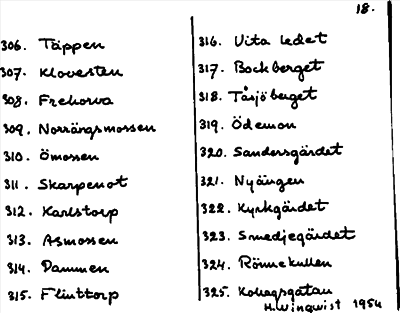 18.
306. Täppen
307. Klovesten
308. Frehorva
309. Norrängsmossen
310. Ömossen
311. Skarpenot
312. Karlstorp
313. Asmossen
314. Dammen
315. Flinttorp
316. Vita ledet
317. Bockberget
318. Tåsjöberget
319. Ödemon
320. Sandersgärdet
321. Nyängen
322. Kyrkgärdet
323. Smedjegärdet
324. Rönnekullen
325. Kohagsgatan
H. Winqvist 1954